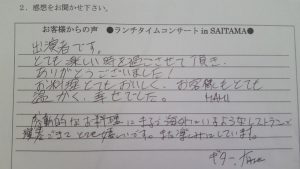 2. 感想をお聞かせ下さい。
お客様からの声 ●ランチタイムコンサート in SAITAMA●
出演者です。
とても楽しい時を過ごさせて頂き、
ありがとうございました！
お料理とてもおいしく、お客様もとても
温かく、幸せでした。 MAMI
感動的なお料理に まるで海外にいるようなレストランで
演奏できて とても嬉しいです。また楽しみにしています。
ギター